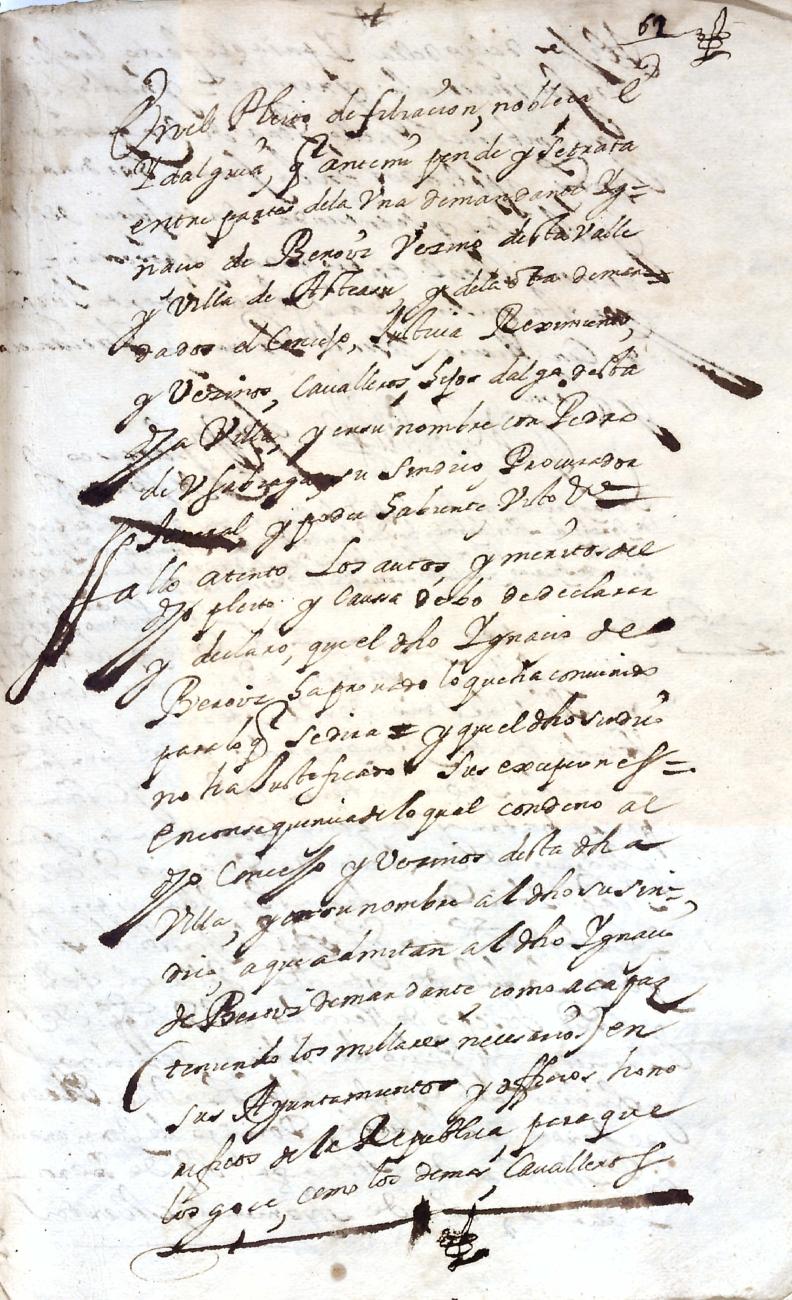 62
En el Pleito de filiacion, nobleca e
Ydalguia, q̃ antemi pende y se trata
entre partes dela Vna demandante Yg=
nacio de Beroiz Vezino desta Valle
y Villa de Asteasu, y dela otra deman=
dados el Concejo, Justicia Reximiento,
y Vezinos, Cavalleros, hijos dalgo desta
dha Villa, y en su nombre con Pedro
de Vsabiaga, su Sindico Procurador
General y poder habiente Visto &
Fallo atento Los autos y meritos del
dho pleito y Caussa debo de declarar
y declaro, que el dho Ygnacio de
Beroiz ha provado lo que ha convenido
para lo q̃ se dira = y que el dho sindico
no ha Justificado sus excepciones =
en consequencia de lo qual condeno al
dho Concejo y Vezinos desta dha
Villa, y en su nombre al dho su sin=
dico, a que admitan al dho Ygnacio
de Beroiz demandante, como a capaz
(teniendo los millares necesarios) en
sus Ayuntamientos y officios hono
rificos de la Republica para que
los goce, como los demas Cavalleros